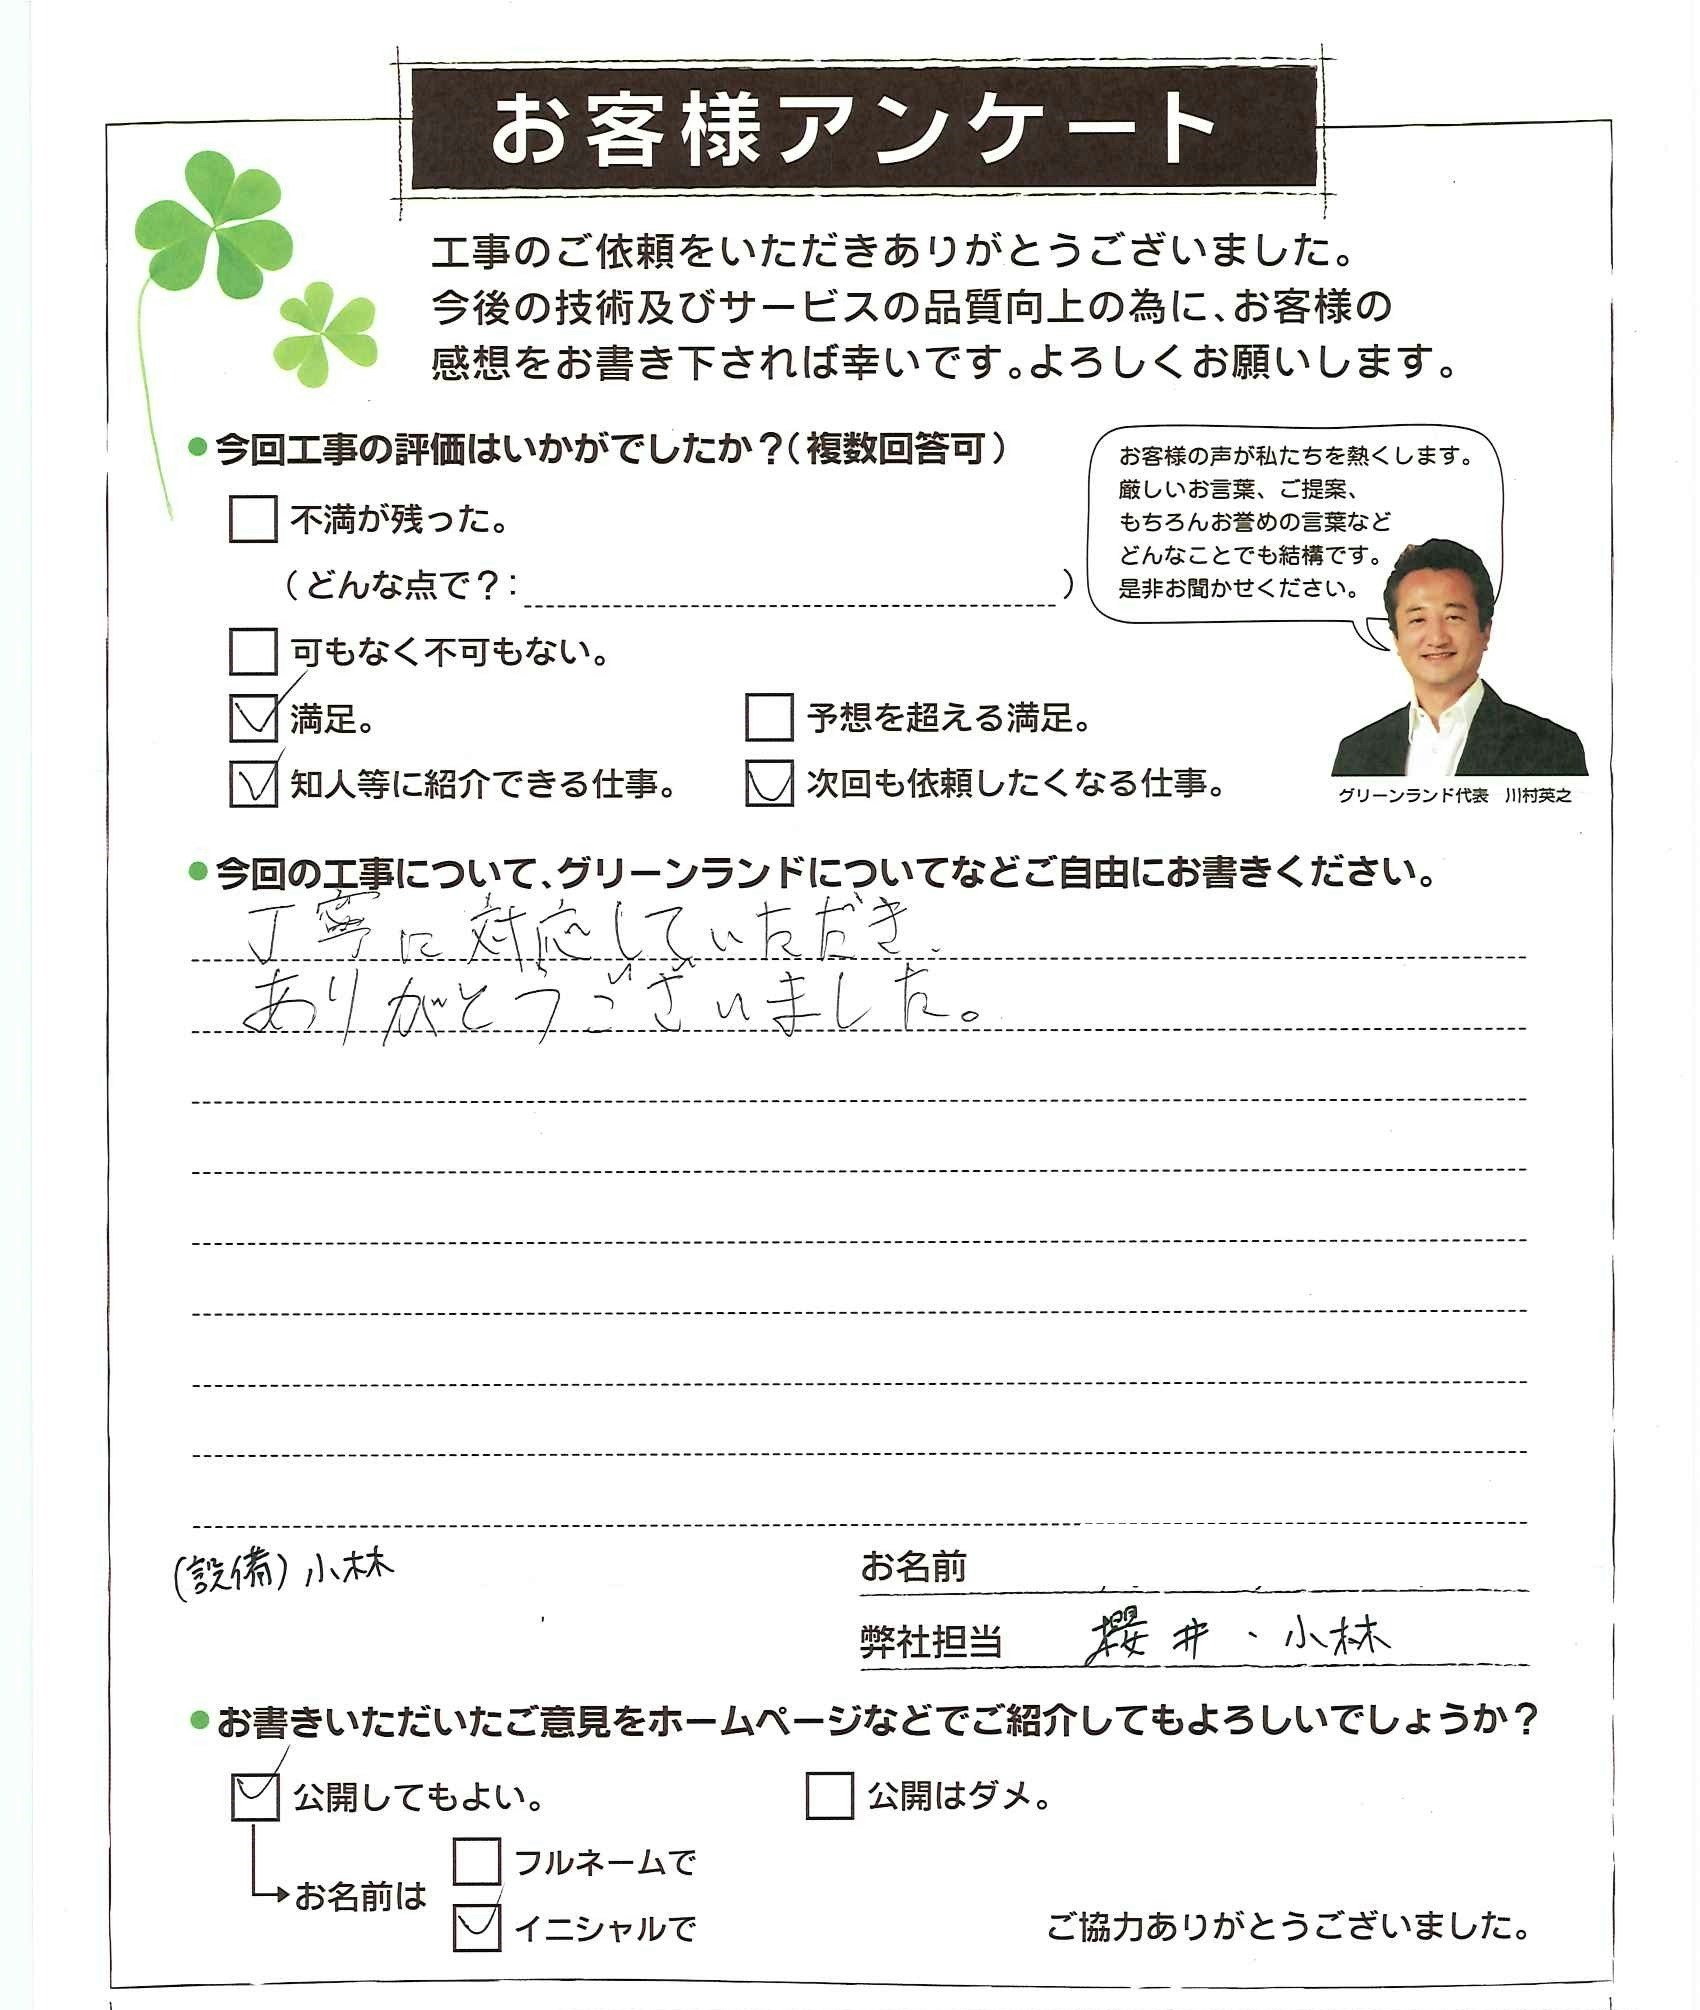 お客様アンケート
工事のご依頼をいただきありがとうございました。
今後の技術及びサービスの品質向上の為に、お客様の
感想をお書き下されば幸いです。よろしくお願いします。
●今回工事の評価はいかがでしたか?(複数回答可)
お客様の声が私たちを熱くします。
厳しいお言葉、ご提案、
もちろんお誉めの言葉など
どんなことでも結構です。
是非お聞かせください。
不満が残った。
(どんな点で?: )
可もなく不可もない。
満足。
予想を超える満足。
知人等に紹介できる仕事。
次回も依頼したくなる仕事。
グリーンランド代表 川村英之
●今回の工事について、グリーンランドについてなどご自由にお書きください。
丁寧に対応していただき、
ありがとうございました。
(設備)小林
お名前
弊社担当 櫻井、小林
●お書きいただいたご意見をホームページなどでご紹介してもよろしいでしょうか?
公開してもよい。
公開はダメ。
お名前は
フルネームで
イニシャルで
ご協力ありがとうございました。